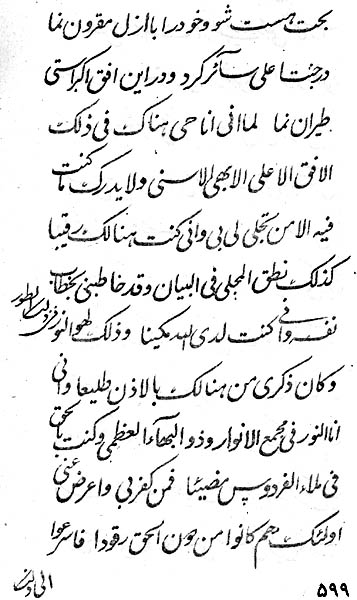 بحت هست شو و خود را با ازل مقرون نما
در جنّت اعلی سائر گرد و در این افق اکبر استی
طیران نما لما انی انا حی هناک فی ذلک
الافق الاعلی الابهی الاسنی ولا یدرک ما کنت
فیه الا من تجلی لی بی و انی کنت هنالک رقیبا
کذلک نطق المجلی فی البیان و قد خاطبنی بخطاب
نفسه و انی کنت لدی الله مکینا و ذلک لهو النور فوق الطور
و کان ذکری من هنالک بالاذن طلیعا و انی
انا النور فی مجمع الانوار و ذو البهاء العظمی و کنت بالحق
فی ملاء الفردوس مضیئا فمن کفر بی و اعرض عنی
اولئک هم کانوا من حون الحق رقودا فاسرعوا
۵۹۹
الی ذلک